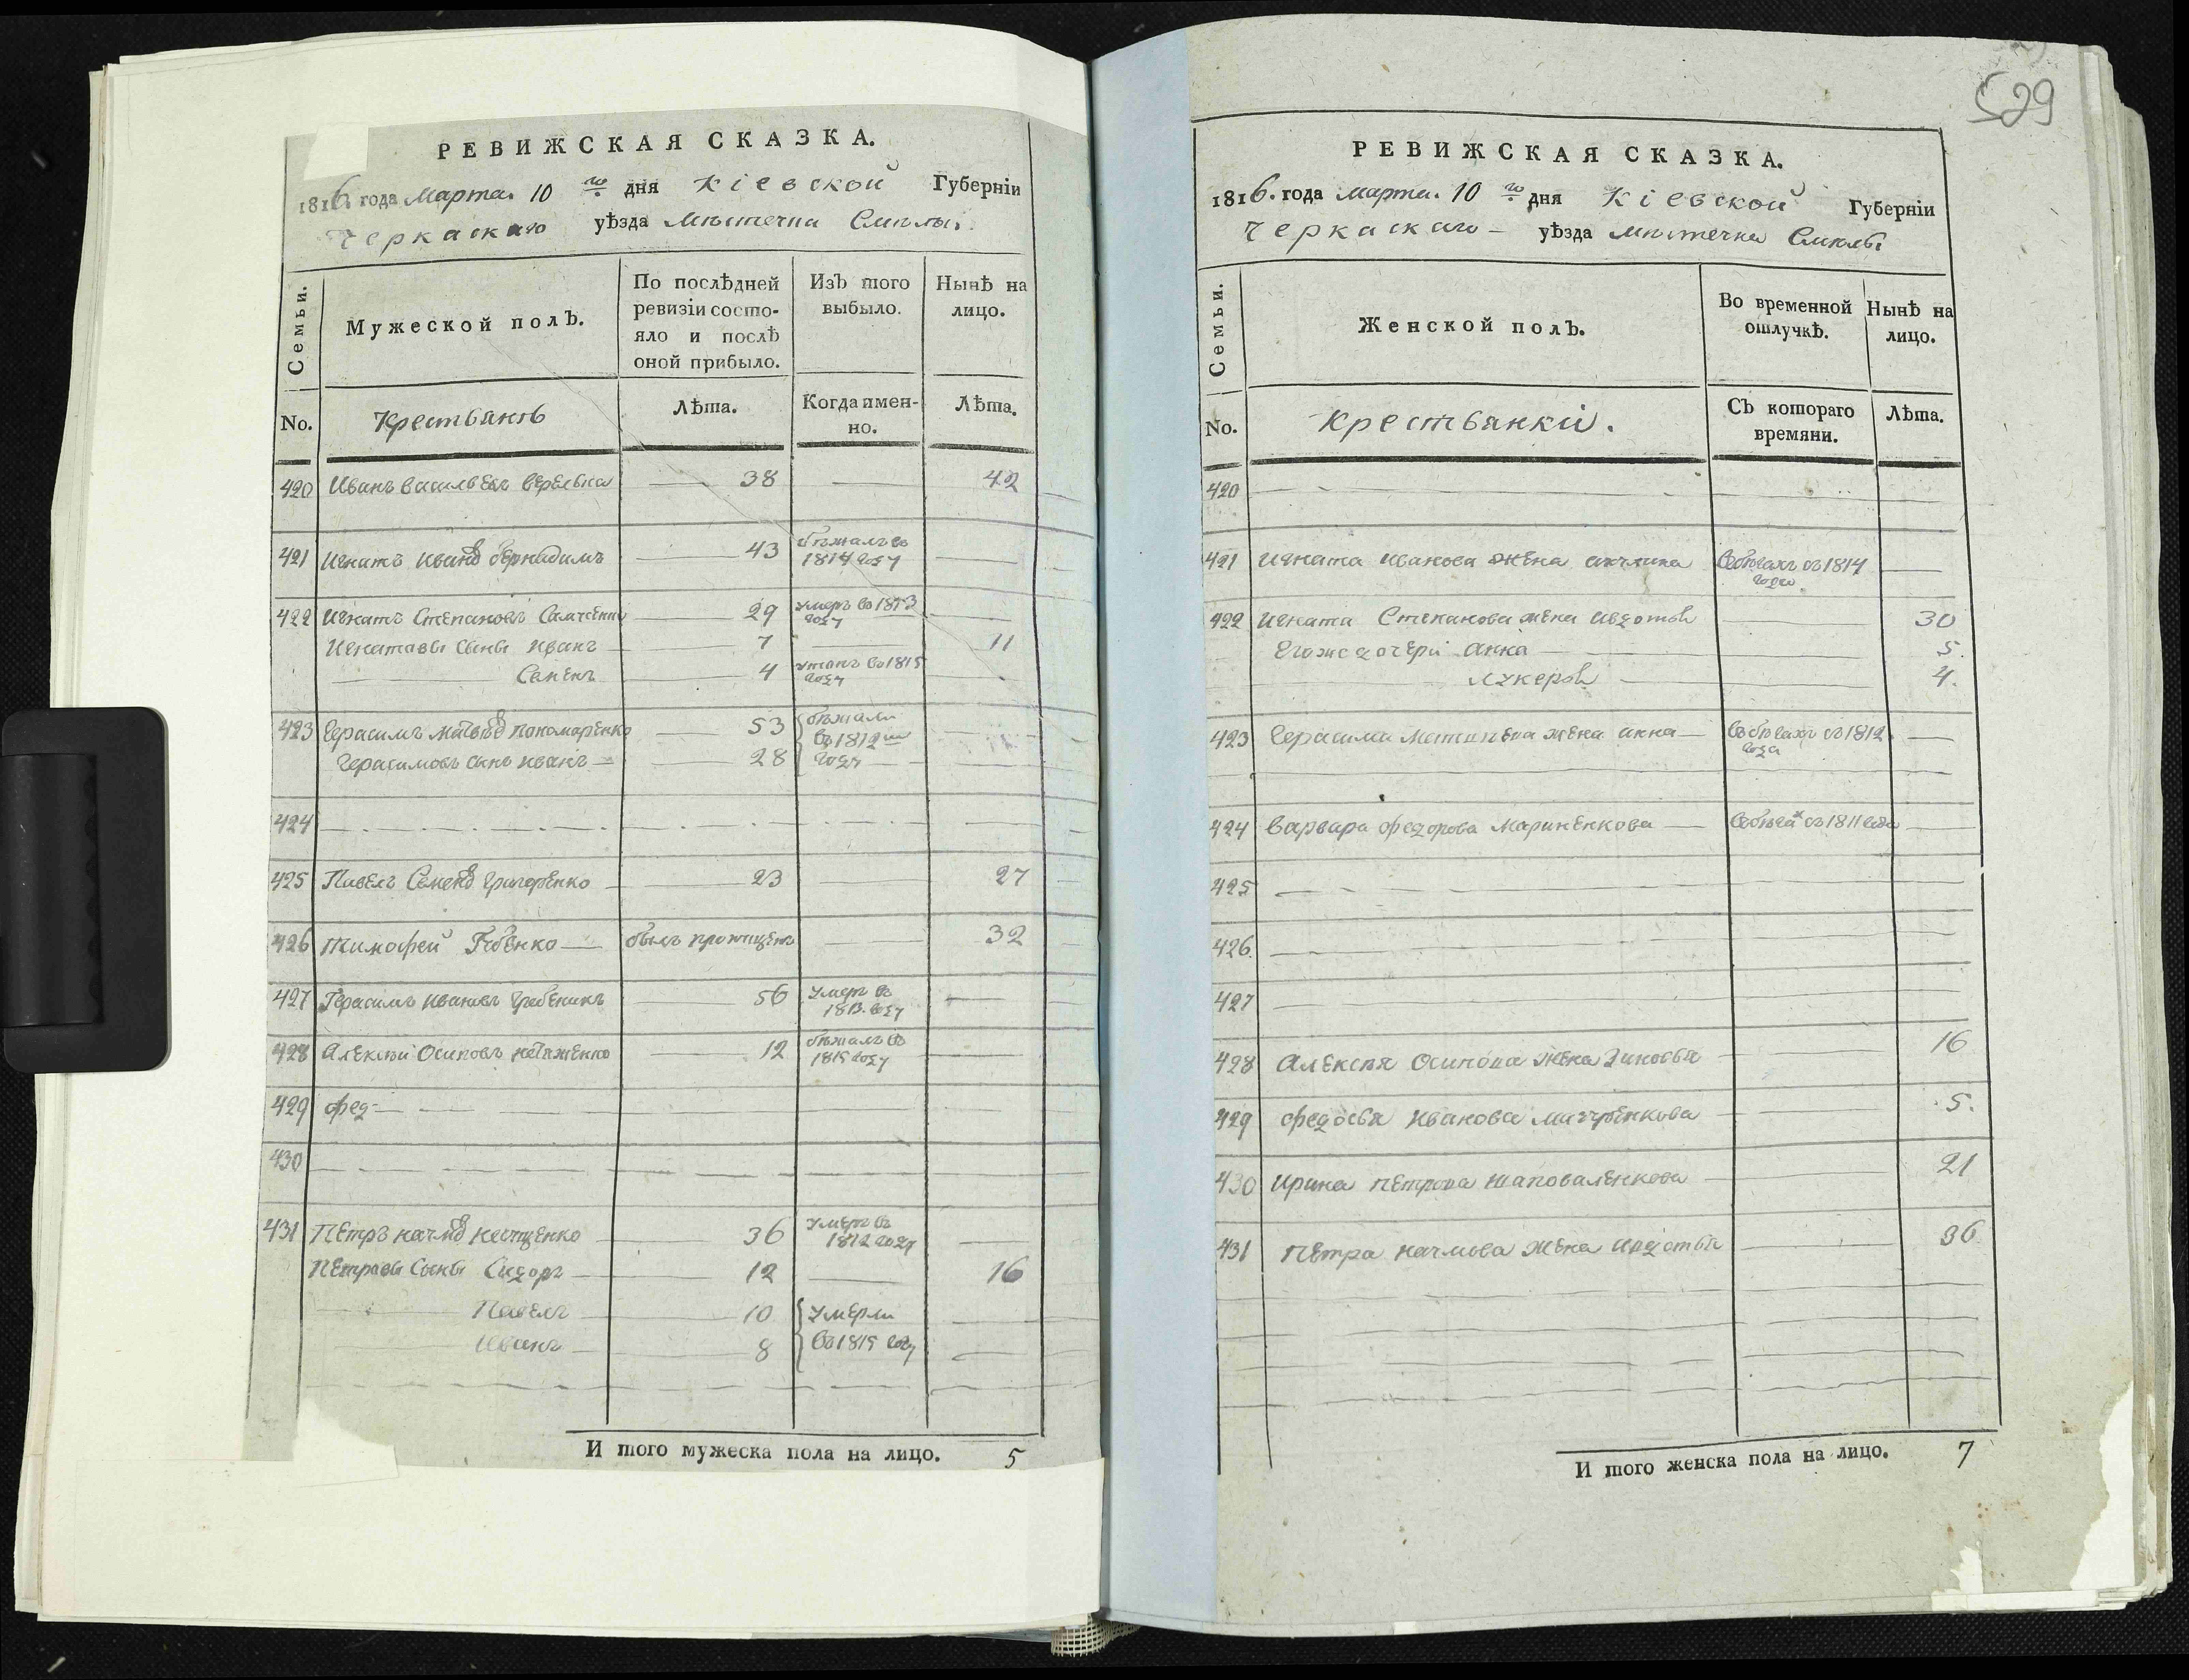 РЕВИЖСКАЯ СКАЗКА.
1816. года Марта. 10 го дня Кіевской Губерніи
Черкаскаго уѣзда Мѣстечка Смѣлы.
Семьи.
Мужеской полЪ.
По послѣдней ревизіи состо-
яло и послѣ оной прибыло.
ИзЪ того выбыло.
Нынѣ на лицо.
No.
Крестьянѣ
Лѣта.
Когда имен-
но.
Лѣта.
420 Иванъ Васильевъ 38 42
421 Игнатъ Иванов 43 бѣжалъ въ
1814 году
422 Игнатъ Степановъ 29 умеръ во 1813
году
Игнатовы сыны Иванъ 7 11
Семенъ 4 въ 1815
году
423 Герасимъ Пономаренко 53 бѣжали
въ 1812 м
Герасимовъ сынъ Иванъ 28 году
424
425 Павелъ Семенов Григоренко 23 27
426 Тимофей былъ пропущенъ 32
427 Герасимъ Ивановъ Гребеникъ 56 умеръ въ
1813. году
428 Алексѣй Осиповъ 12 бѣжалъ въ
1815 году
429 Фед
430
431 Петръ 36 умеръ въ
1812 году
Петровы сыны Сидоръ 12 16
Павелъ 10 умерли
Иванъ 8 въ 1815 году
И того мужеска пола на лицо. 5
529
РЕВИЖСКАЯ СКАЗКА.
1816. года Марта. 10 го дня Кіевской Губерніи
Черкаскаго уѣзда мѣстечка Смѣлы
Семьи.
Женской полЪ.
Во временной
отлучкѣ.
Нынѣ на
лицо.
No.
Крестьянкі.
СЪ котораго
времяни.
Лѣта.
420
421 Игната Иванова жена въ бѣгахъ съ 1814
года
422 Игната Степанова жена Авдотья 30
Егожъ дочери Анна 5.
Лукерья 4.
423 Герасима жена Анна въ бѣгахъ съ 1812
года
424 Варвара Федорова Мариненкова въ бѣгах съ 1811 года
425
426.
427
428 Алексѣя Осипова жена Зиновья 16
429 Федосья Иванова 5.
430 Ирина Петрова Шаповаленкова 21
431 Петра Наумова жена Авдотья 36
И того женска пола на лицо. 7